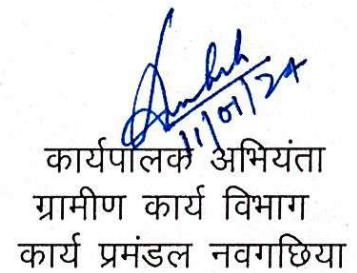 11/01/24
कार्यपालक अभियंता
ग्रामीण कार्य विभाग
कार्य प्रमंडल नवगछिया